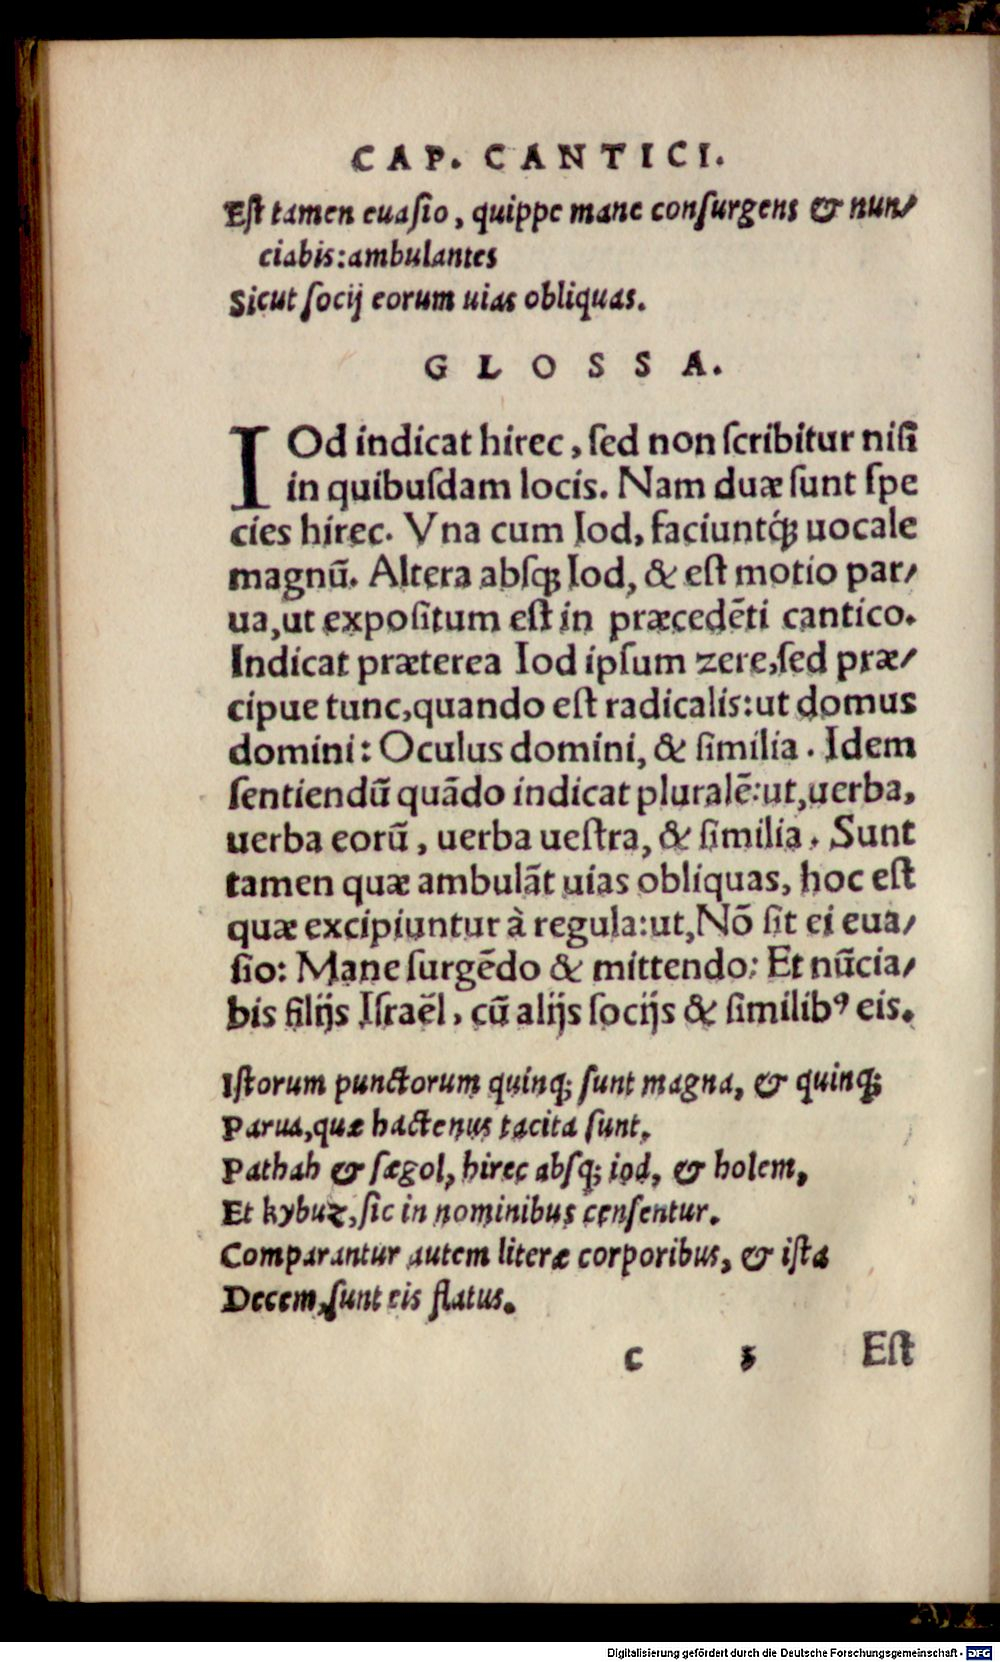 CAP. CANTICI.
Eſt tamen euaſio, quippe mane conſurgens & nun/
ciabis:ambulantes
Sicut ſocij eorum uias obliquas.
GLOSSA.
IOd indicat hirec, ſed non ſcribitur niſi
in quibuſdam locis. Nam duæ ſunt ſpe
cies hirec. Vna cum Iod, faciuntq́ꝫ uocale
magnū. Altera abſqꝫ Iod, & eſt motio par/
ua,ut expoſitum eſt in præcedēti cantico.
Indicat præterea Iod ipſum zere,ſed præ/
cipue tunc,quando eſt radicalis:ut domus
domini: Oculus domini, & ſimilia. Idem
ſentiendū quādo indicat pluralē:ut,uerba,
uerba eorū, uerba ueſtra, & ſimilia. Sunt
tamen quæ ambulāt uias obliquas, hoc eſt
quæ excipiuntur à regula:ut,Nō ſit ei eua/
ſio: Mane ſurgēdo & mittendo: Et nūcia/
bis filijs Iſraēl, cū alijs ſocijs & ſimilibꝰ eis.
Iſtorum punctorum quinqꝫ ſunt magna, & quinqꝫ
Parua,quæ hactenus tacita ſunt.
Pathah & ſægol, hirec abſqꝫ iod, & holem,
Et kybuz,ſic in nominibus cenſentur.
Comparantur autem literæ corporibus, & iſta
Decem,ſunt eis flatus.
c 5 Eſt
Digitalisierung gefördert durch die Deutsche Forschungsgemeinschaft - DFG